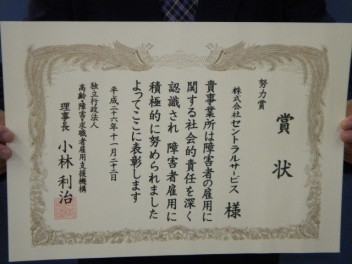 賞状
努力賞
株式会社セントラルサービス 様
貴事業所は障害者の雇用に
関する社会的責任を深く
認識され 障害者雇用に
積極的に努められました
よってここに表彰します
平成二十六年十一月二十三日
独立行政法人
高齢・障害・求職者雇用支援機構
理事長 小林利治